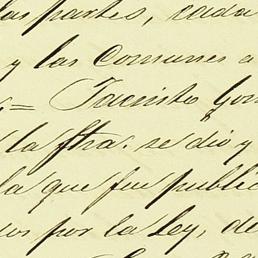 las partes, cada
y las Comunes a
= Jacinto Gon
la ftha. se dió y
la que fue public
dos por la Ley, de